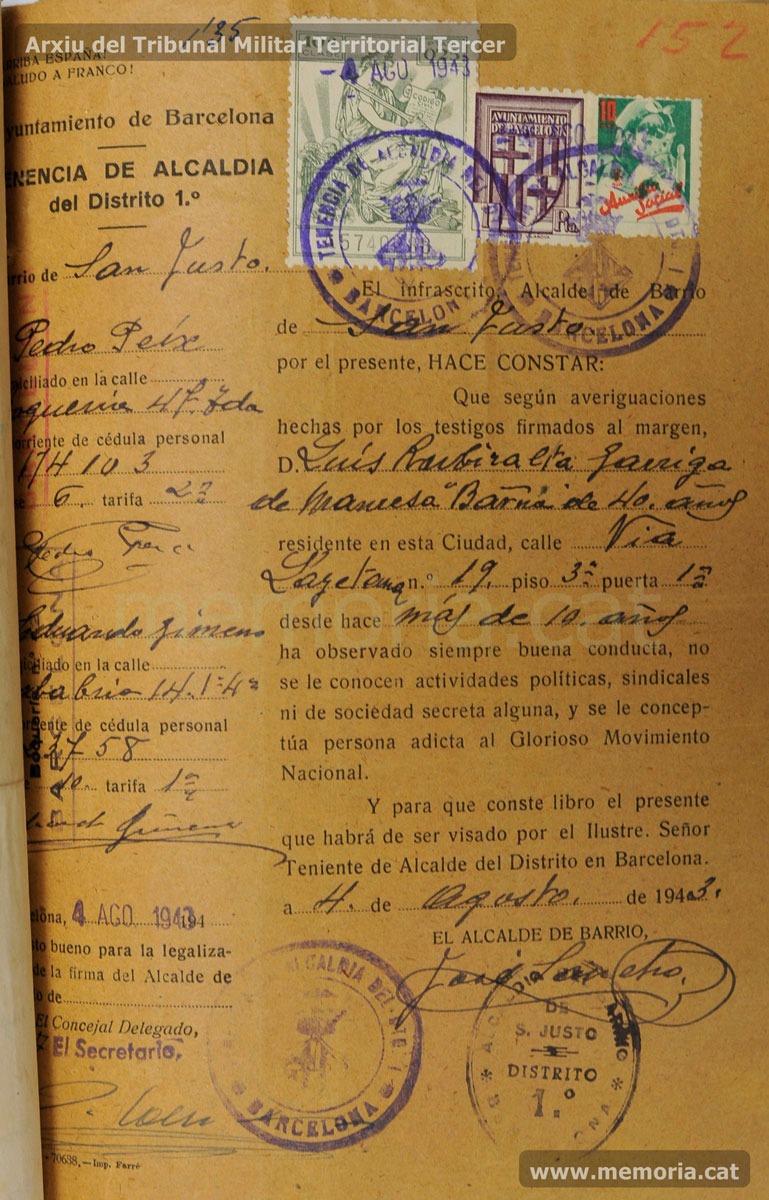 Arxiu del Tribunal Militar Territorial Tercer
1'35
152
RRIBA ESPAÑA!
ALUDO A FRANCO!
yuntamiento de Barcelona
ENENCIA DE ALCALDIA
del Distrito 1.º
rrio de San Justo.
Pedro Peix
iciliado en la calle
oqueria 47. 7da
orriente de cédula personal
174103
e 6. tarifa 2ª
Eduardo Gimeno
iciliado en la calle
14. 1º 4ª
rriente de cédula personal
3758
e 10. tarifa 1ª
elona, 4 AGO 1943 194
to bueno para la legaliza-
de la firma del Alcalde de
o de
El Concejal Delegado,
El Secretario,
70638,—Imp. Farré
- 4 AGO 1943
CODIGO
AYUNTAMIENTO
DE BARCELONA
Pta
10
Auxilio
Social
TENENCIA DE ALCALDIA DEL
BARCELONA
BARCELONA
El infrascrito, Alcalde de Barrio
de San Justo
por el presente, HACE CONSTAR:
Que según averiguaciones
hechas por los testigos firmados al margen,
D. Luís Rubiralta Garriga
de Manresa "Barña" de 40. años
residente en esta Ciudad, calle Via
Layetana n.º 19. piso 3º puerta 1ª
desde hace más de 10. años
ha observado siempre buena conducta, no
se le conocen actividades políticas, sindicales
ni de sociedad secreta alguna, y se le concep-
túa persona adicta al Glorioso Movimiento
Nacional.
Y para que conste libro el presente
que habrá de ser visado por el Ilustre. Señor
Teniente de Alcalde del Distrito en Barcelona.
a 4. de Agosto. de 1943.
EL ALCALDE DE BARRIO,
José Sancho.
ALCALDIA DEL DTO. I
BARCELONA
ALCALDIA BARRIO
DE
S. JUSTO
DISTRITO
1.º
BARCELONA
memoria.cat
www.memoria.cat